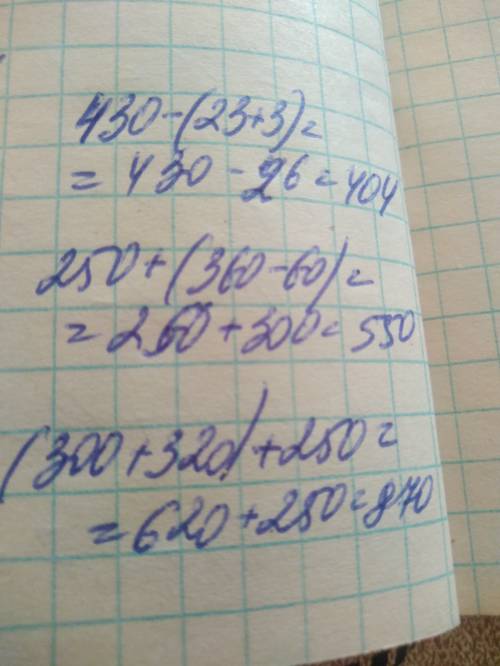 430-(23+3)=
=430-26=404
250+(360-60)=
=250+300=550
(300+320)+250=
=620+250=870